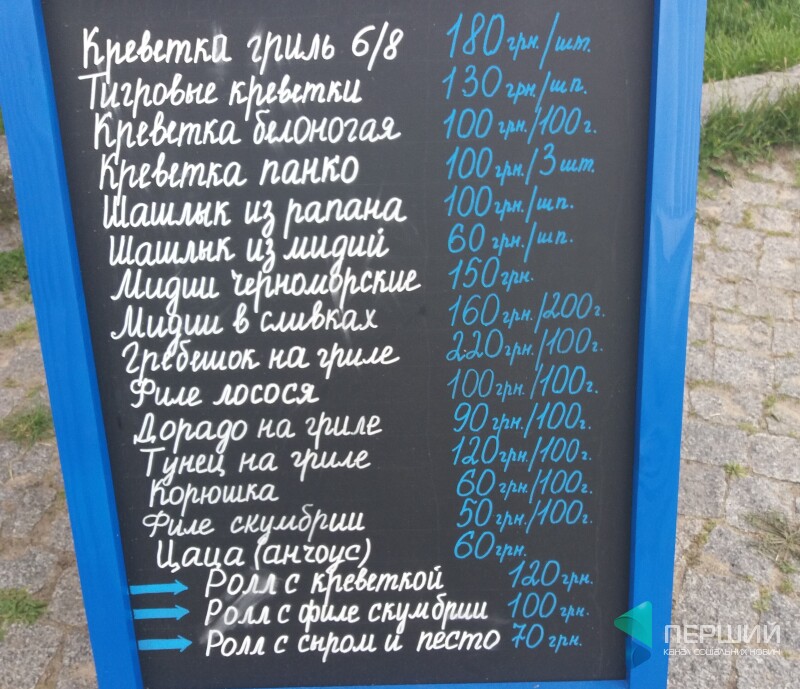 Креветка гриль 6/8 180 грн./шт.
Тигровые креветки 130 грн/шп.
Креветка белоногая 100 грн./100 г.
Креветка панко 100 грн./3 шт.
Шашлык из рапана 100 грн./шп.
Шашлык из мидий 60 грн./шп.
Мидии черноморские 150 грн.
Мидии в сливках 160 грн./200 г.
Гребешок на гриле 220 грн./100 г.
Филе лосося 100 грн./100 г.
Дорадо на гриле 90 грн./100 г.
Тунец на гриле 120 грн./100 г.
Корюшка 60 грн./100 г.
Филе скумбрии 50 грн./100 г.
Цаца (анчоус) 60 грн.
Ролл с креветкой 120 грн.
Ролл с филе скумбрии 100 грн.
Ролл с сыром и песто 70 грн.
ПЕРШИЙ
КАНАЛ СОЦІАЛЬНИХ НОВИН